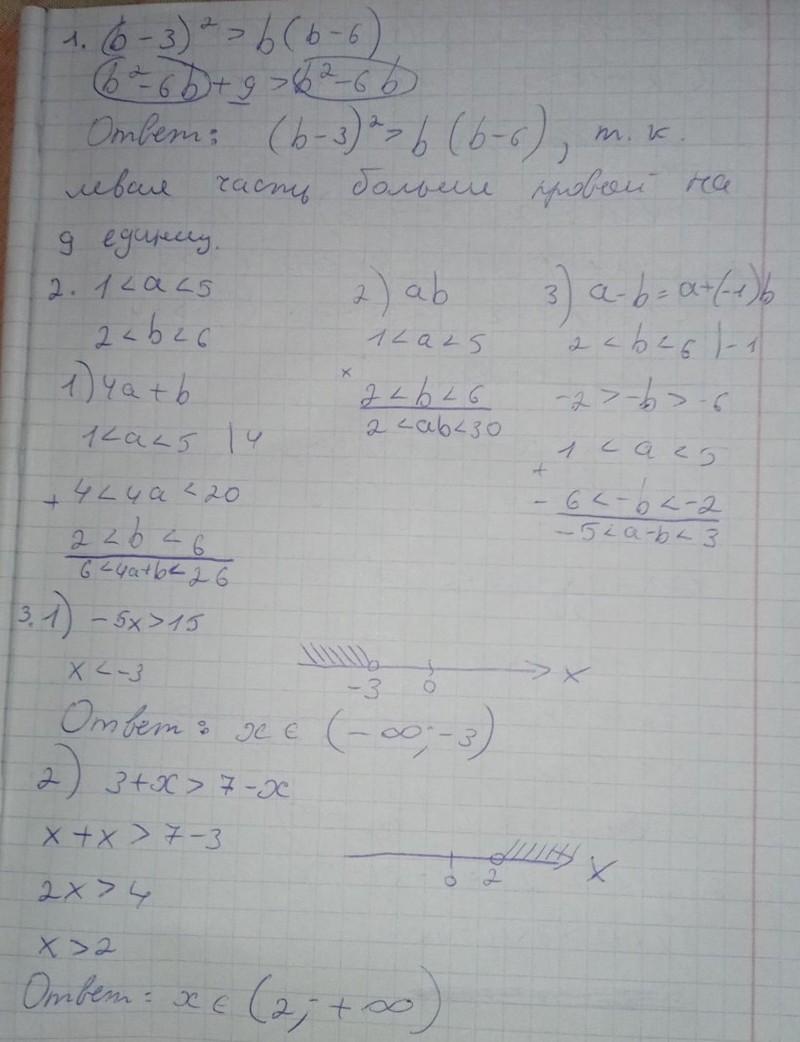 1. (b-3)² > b(b-6)
b²-6b+9 > b²-6b
Ответ: (b-3)² > b(b-6), т. к.
левая часть больше правой на
9 единиц.
2. 1<a<5
2<b<6
1) 4a+b
1<a<5 |4
+ 4<4a<20
2<b<6
6<4a+b<26
2) ab
1<a<5
× 2<b<6
2<ab<30
3) a-b=a+(-1)b
2<b<6 |-1
-2>-b>-6
1<a<5
+ -6<-b<-2
-5<a-b<3
3. 1) -5x>15
x<-3
-3 0 x
Ответ: x∈(-∞;-3)
2) 3+x>7-x
x+x>7-3
2x>4
0 2 x
x>2
Ответ: x∈(2;+∞)